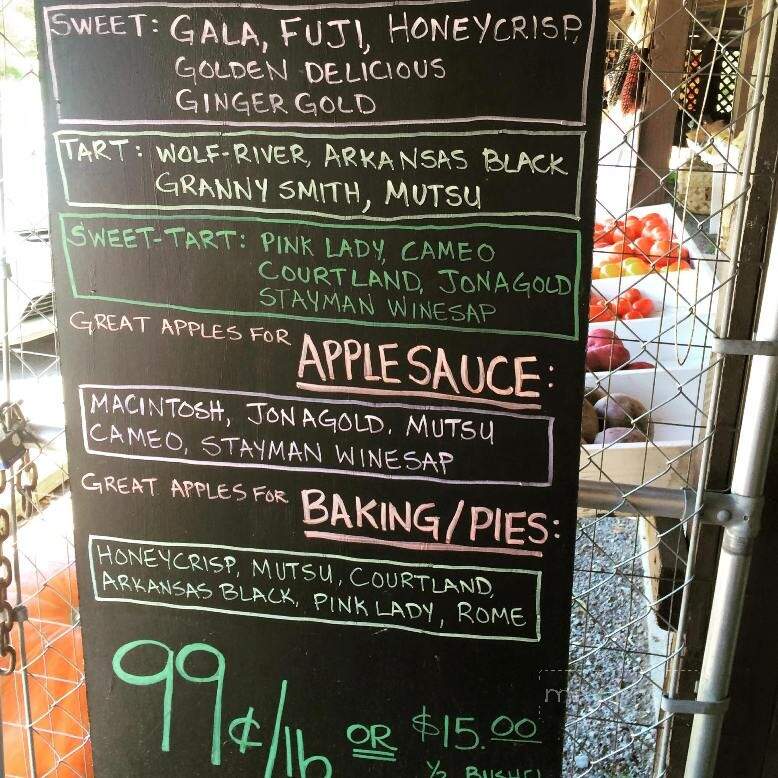 SWEET: GALA, FUJI, HONEYCRISP,
GOLDEN DELICIOUS
GINGER GOLD
TART: WOLF-RIVER, ARKANSAS BLACK
GRANNY SMITH, MUTSU
SWEET-TART: PINK LADY, CAMEO
COURTLAND, JONAGOLD
STAYMAN WINESAP
GREAT APPLES FOR APPLESAUCE:
MACINTOSH, JONAGOLD, MUTSU
CAMEO, STAYMAN WINESAP
GREAT APPLES FOR BAKING/PIES:
HONEYCRISP, MUTSU, COURTLAND,
ARKANSAS BLACK, PINK LADY, ROME
99¢/lb OR $15.00
½ BUSHEL